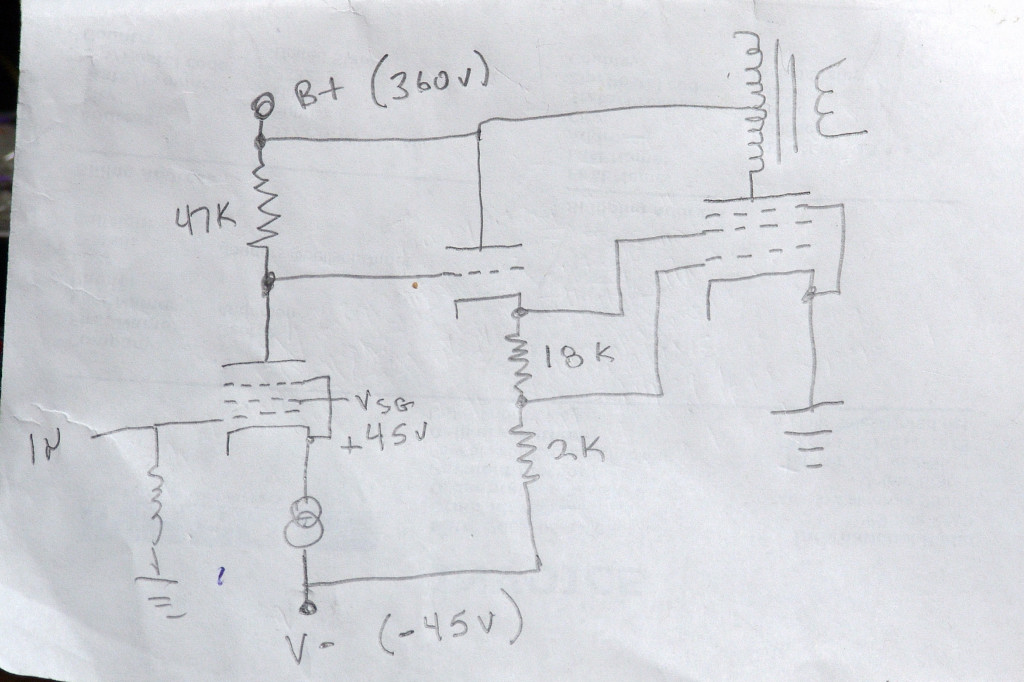 B+ (360V)
47K
18K
VSG
+45V
IN
2K
V- (-45V)